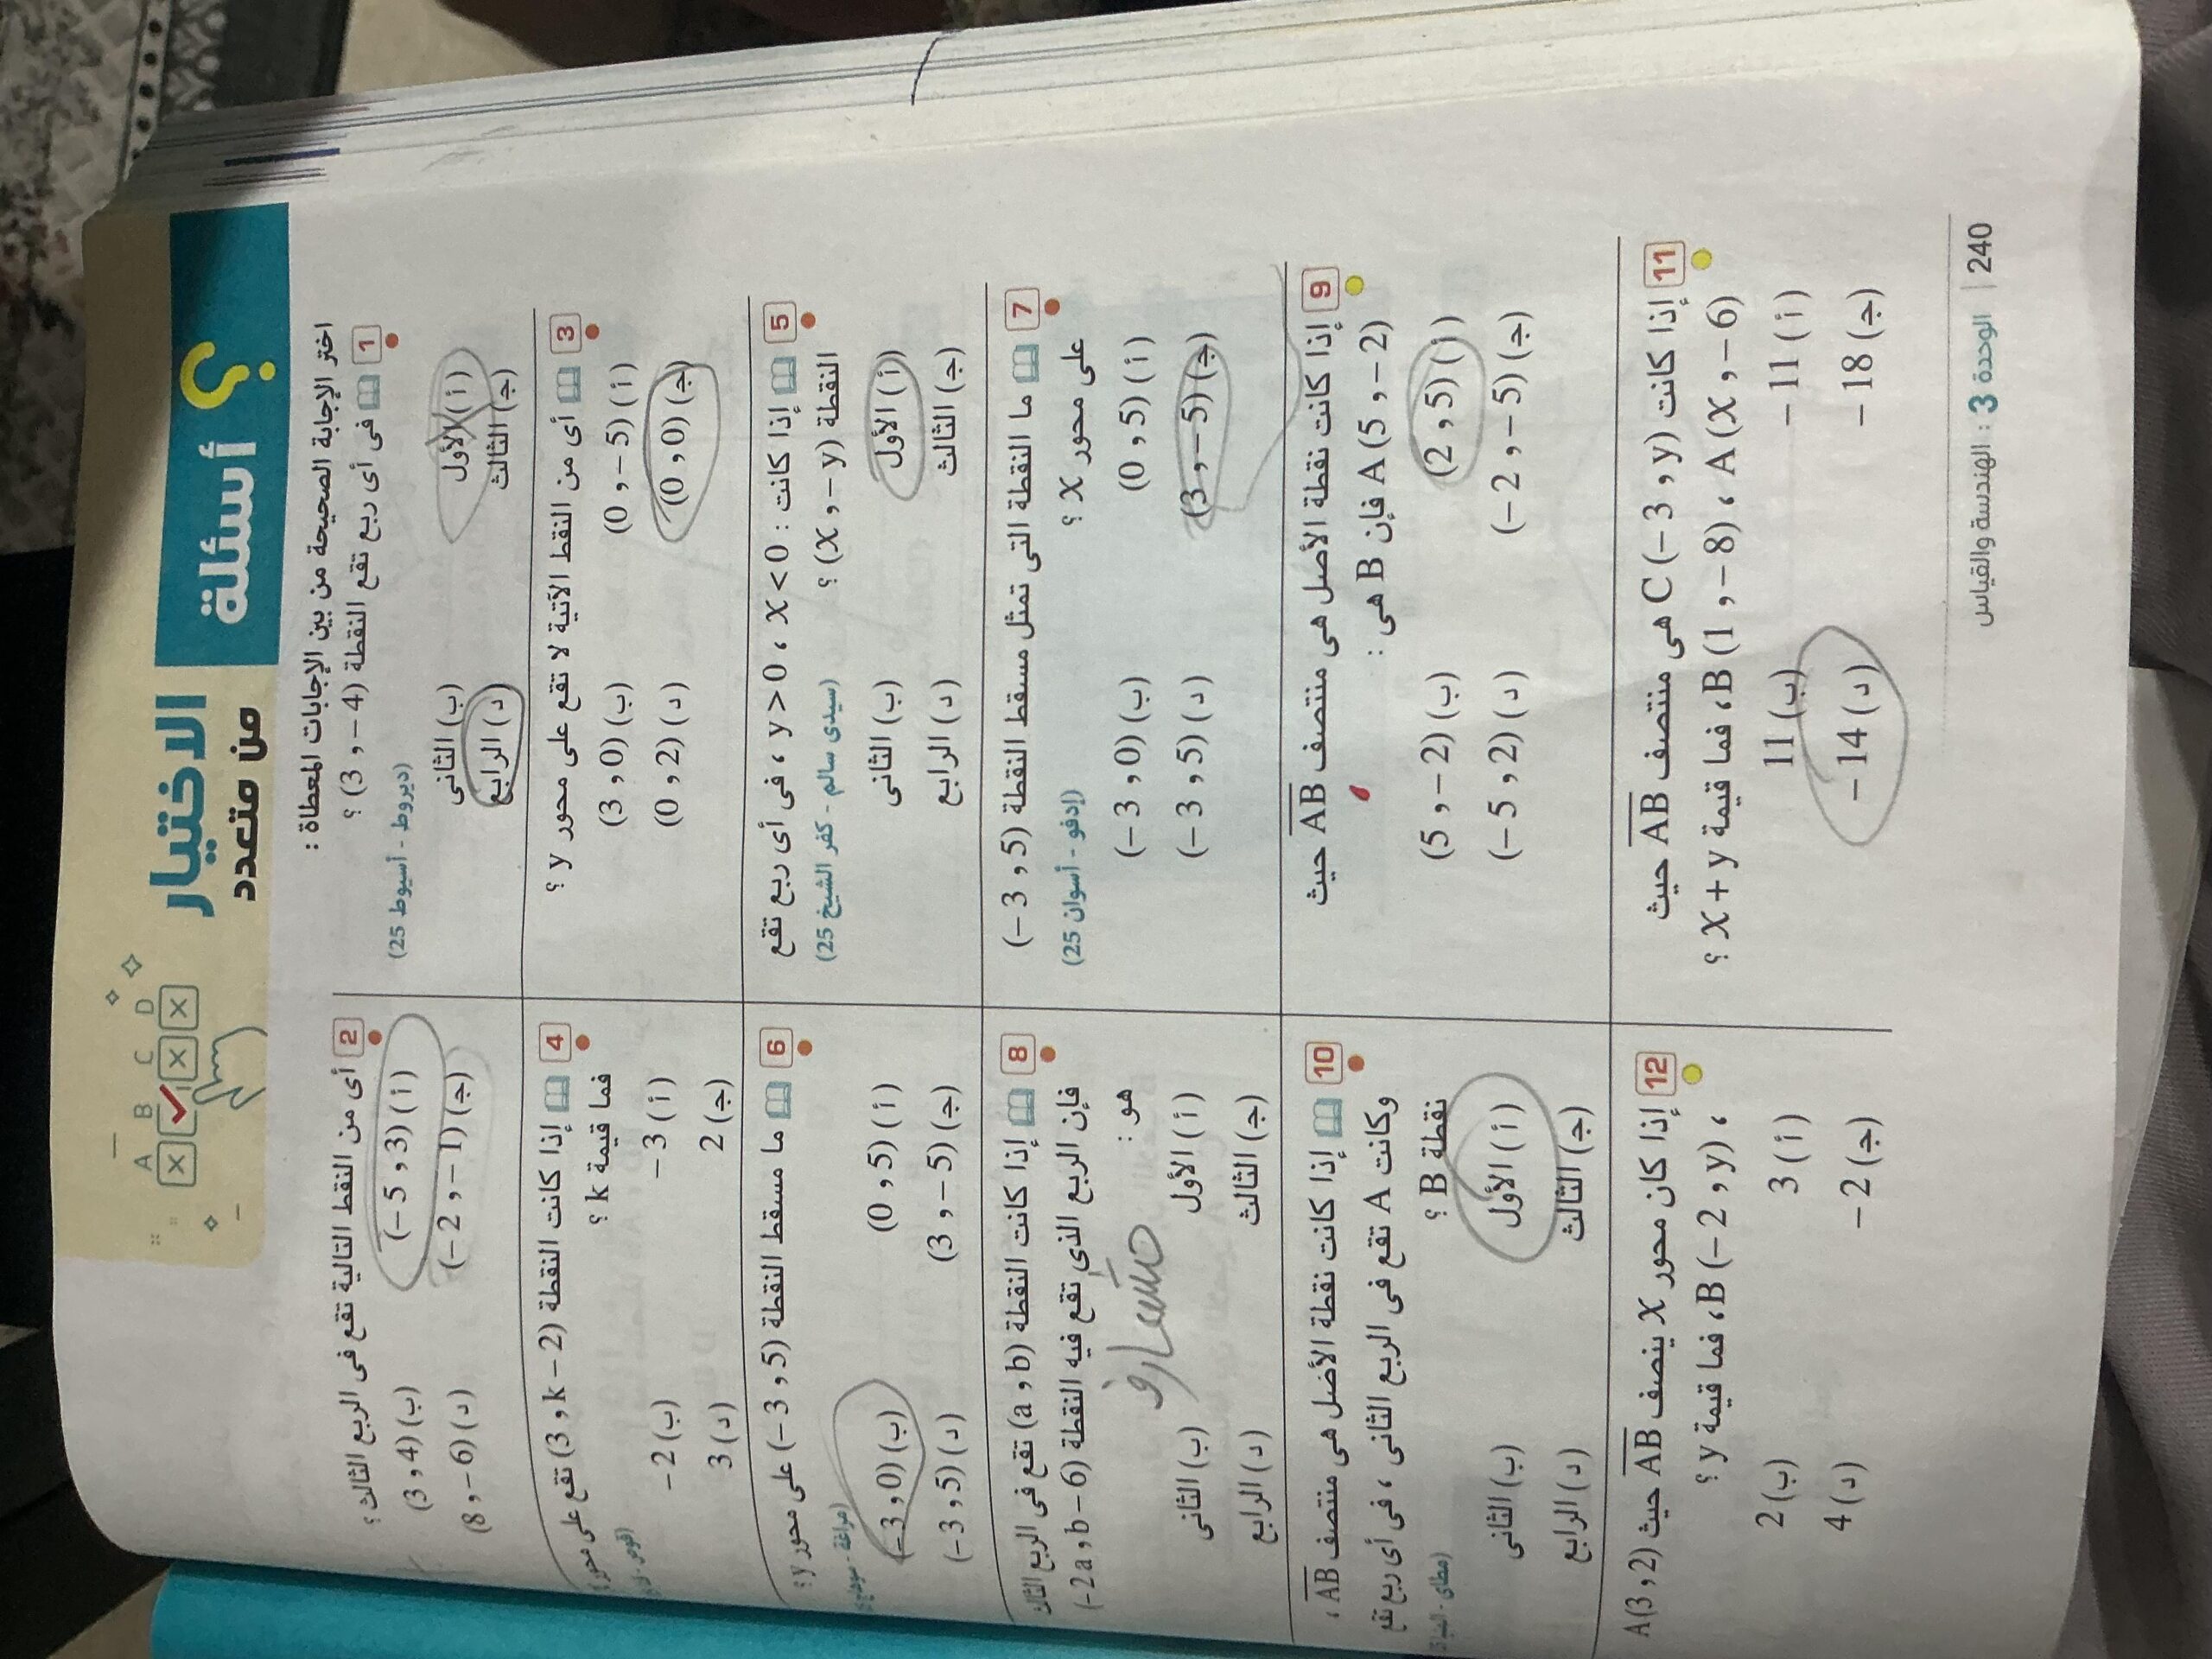 A B C D
أسئلة ؟ الاختيار
من متعدد
اختر الإجابة الصحيحة من بين الإجابات المعطاة :
1 فى أى ربع تقع النقطة (3 , −4) ؟
(ديروط - أسيوط 25)
(أ) الأول (ب) الثانى
(ج) الثالث (د) الرابع
2 أى من النقط التالية تقع فى الربع الثالث ؟
(أ) (−5 , 3) (ب) (3 , 4)
(ج) (−2 , −1) (د) (8 , −6)
3 أى من النقط الآتية لا تقع على محور y ؟
(أ) (0 , −5) (ب) (3 , 0)
(ج) (0 , 0) (د) (0 , 2)
4 إذا كانت النقطة (3 , k − 2) تقع على محور
فما قيمة k ؟
(أ) −3 (ب) −2
(ج) 2 (د) 3
5 إذا كانت : x < 0 ، y > 0 ، فى أى ربع تقع
النقطة (x , −y) ؟ (سيدى سالم - كفر الشيخ 25)
(أ) الأول (ب) الثانى
(ج) الثالث (د) الرابع
6 ما مسقط النقطة (−3 , 5) على محور y ؟
(أ) (0 , 5) (ب) (−3 , 0)
(ج) (3 , −5) (د) (−3 , 5)
7 ما النقطة التى تمثل مسقط النقطة (−3 , 5)
على محور x ؟ (إدفو - أسوان 25)
(أ) (0 , 5) (ب) (−3 , 0)
(ج) (3 , −5) (د) (−3 , 5)
8 إذا كانت النقطة (a , b) تقع فى الربع الثالث
فإن الربع الذى تقع فيه النقطة (−2a , b − 6)
هو :
(أ) الأول (ب) الثانى
(ج) الثالث (د) الرابع
9 إذا كانت نقطة الأصل هى منتصف AB حيث
A (5 , −2) فإن B هى :
(أ) (2 , 5) (ب) (5 , −2)
(ج) (−2 , −5) (د) (−5 , 2)
10 إذا كانت نقطة الأصل هى منتصف AB ،
وكانت A تقع فى الربع الثانى ، فى أى ربع تقع
نقطة B ؟
(أ) الأول (ب) الثانى
(ج) الثالث (د) الرابع
11 إذا كانت C (−3 , y) هى منتصف AB حيث
A (x , −6) ، B (1 , −8) ، فما قيمة x + y ؟
(أ) −11 (ب) 11
(ج) −18 (د) −14
12 إذا كان محور x ينصف AB حيث A (3 , 2)
، B (−2 , y) ، فما قيمة y ؟
(أ) 3 (ب) 2
(ج) −2 (د) 4
240 | الوحدة 3 : الهندسة والقياس